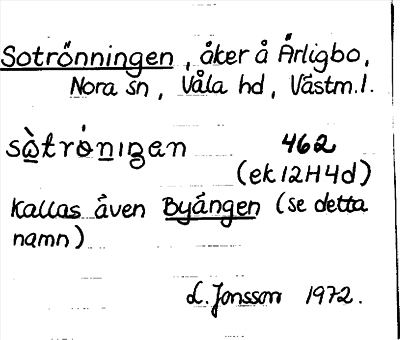 Sotrönningen, åker å Årligbo,
Nora sn, Våla hd, Västm.l.
sὼtróniŋən 462
(ek 12H4d)
Kallas även Byängen (se detta
namn)
L. Jonsson 1972.